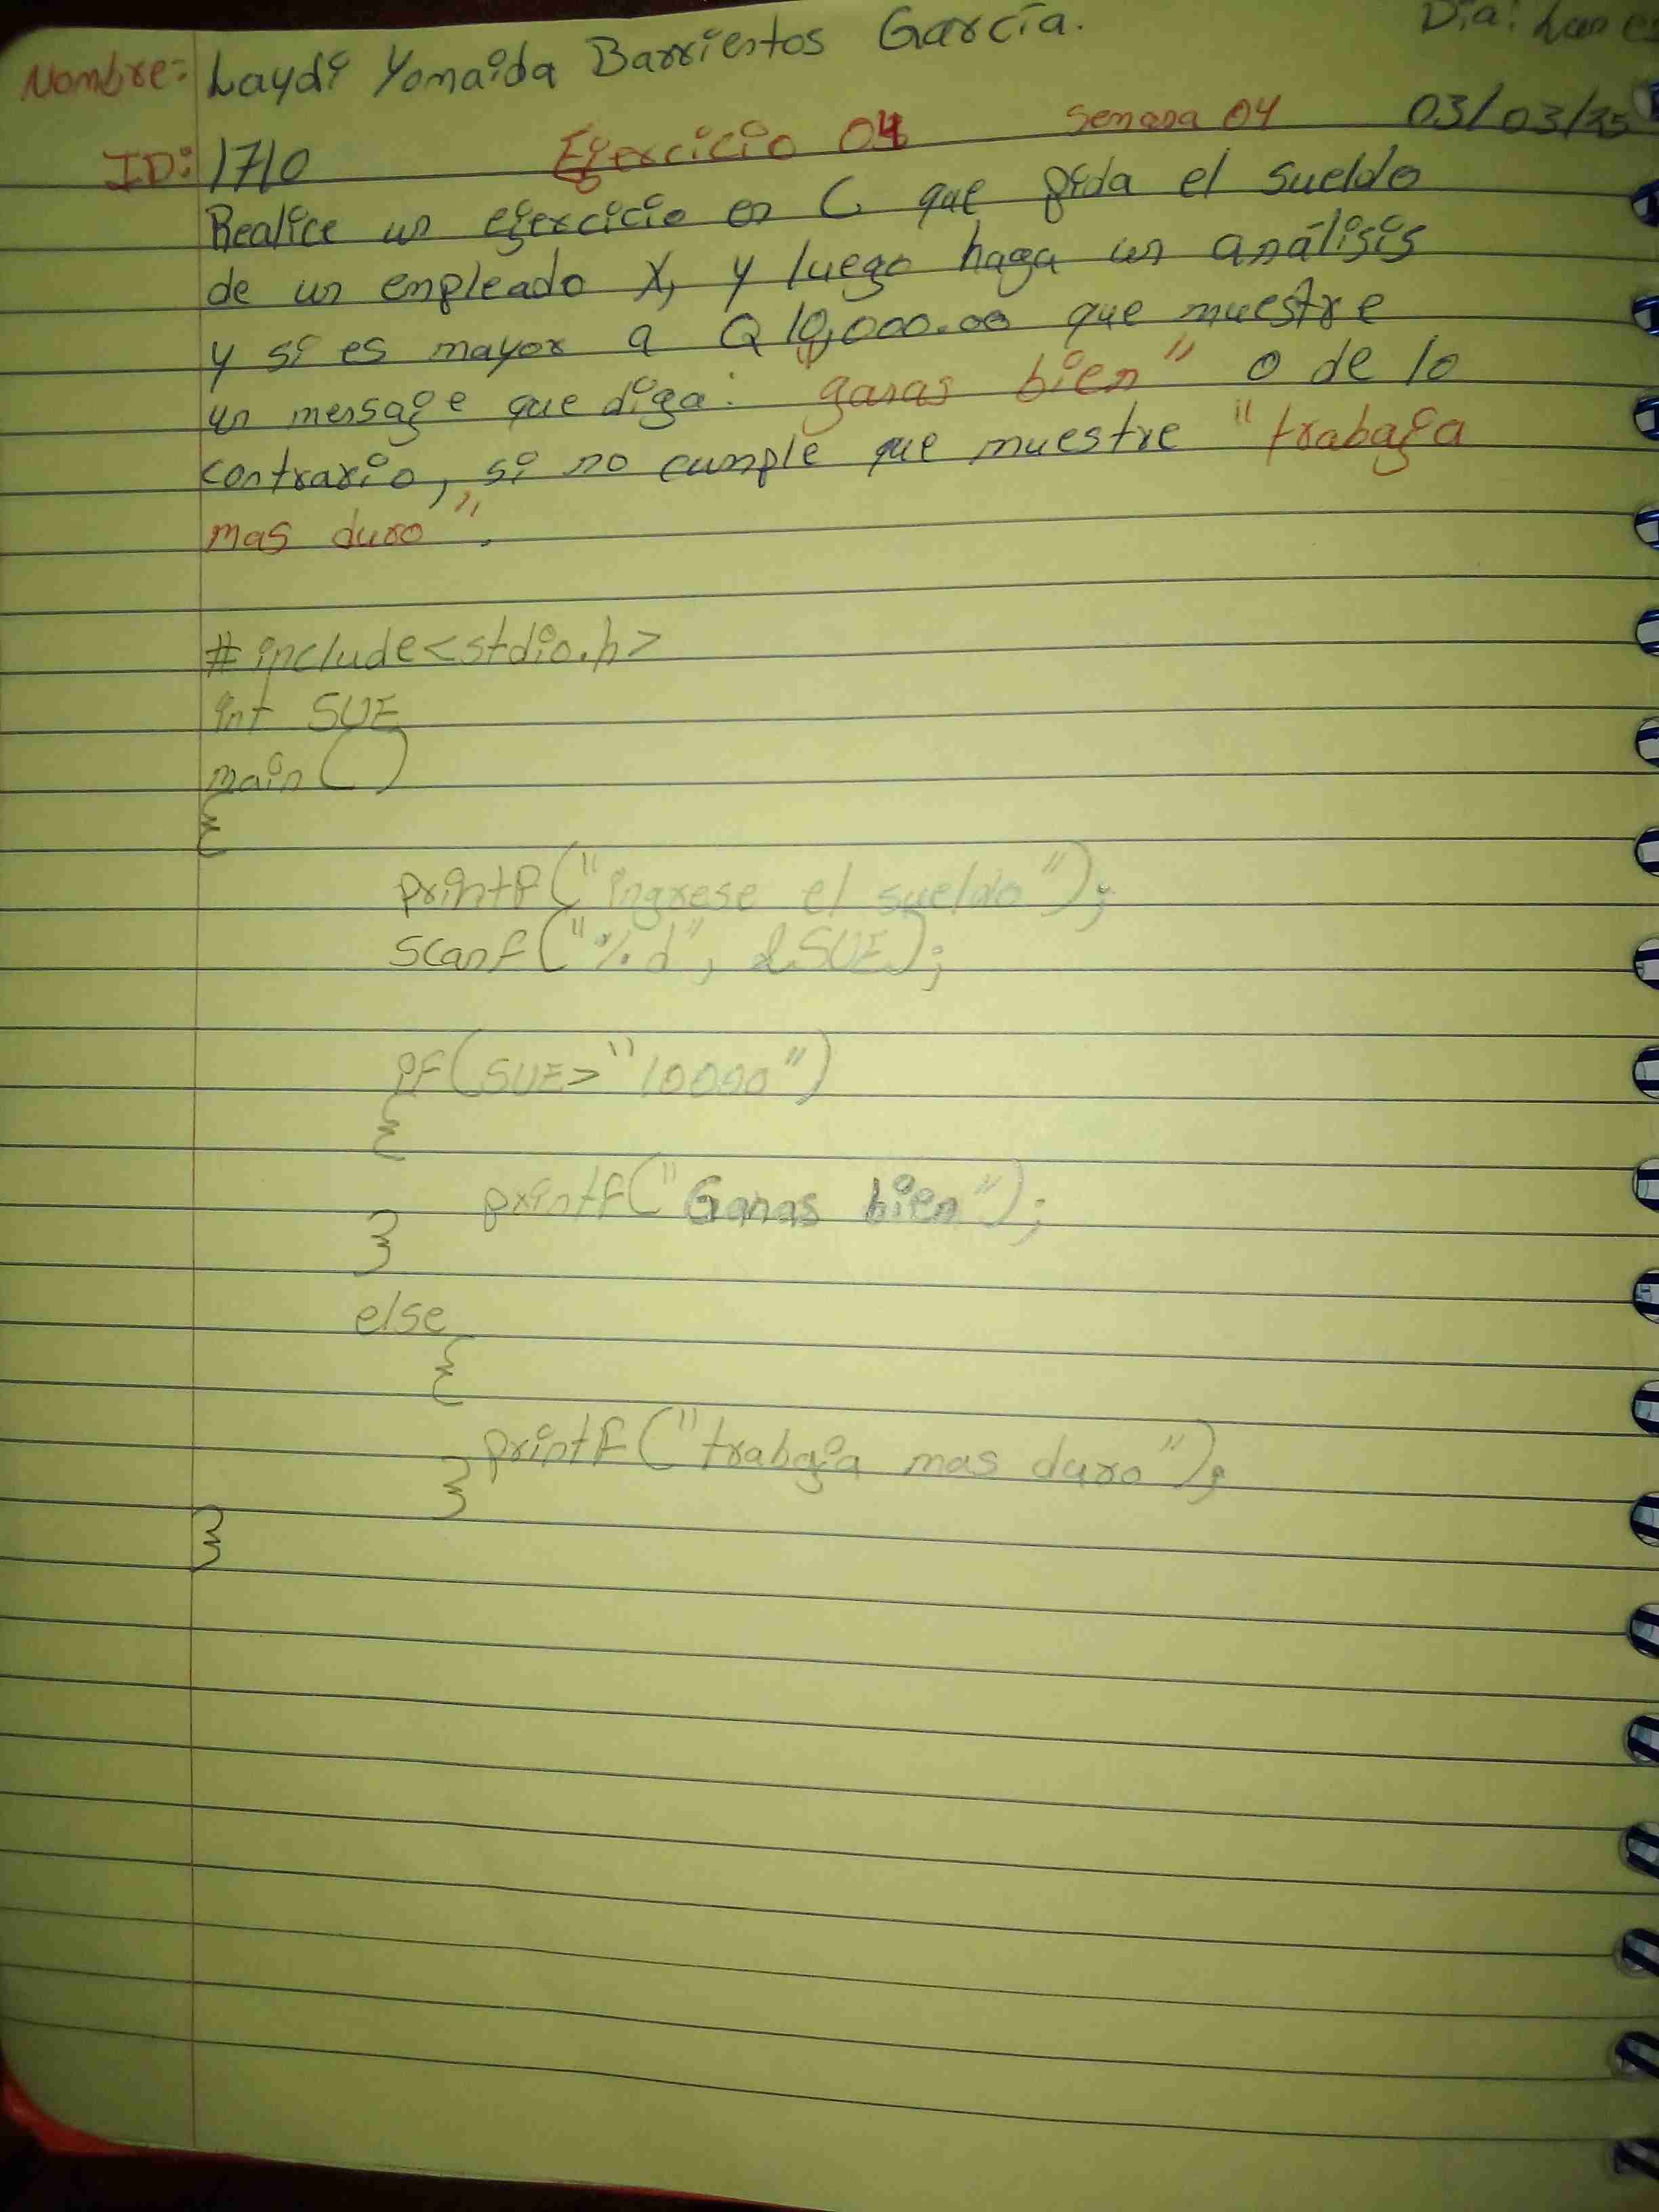 Nombre: Laydi Yomaida Barrientos García. Dia: Lunes
ID: 1710 Ejercicio 04 Semana 04 03/03/25
Realice un ejercicio en C que pida el sueldo
de un empleado X, y luego haga un análisis
y si es mayor a Q 10,000.00 que muestre
un mensaje que diga: "ganas bien" o de lo
contrario, si no cumple que muestre "trabaja
mas duro".
#include<stdio.h>
int SUE
main()
{
printf("ingrese el sueldo");
scanf("%d", &SUE);
if(SUE>"10000")
{
printf("Ganas bien");
}
else
{
printf("trabaja mas duro");
}
}